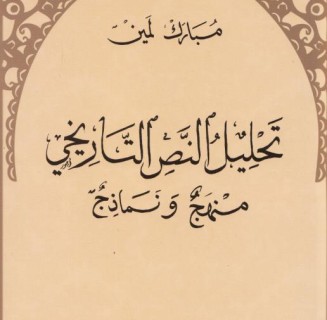 مُبَارك لمِين
تَحْلِيلُ النَّصِ التَّارِيخِي
مَنْهَجٌ وَنَمَاذِجٌ